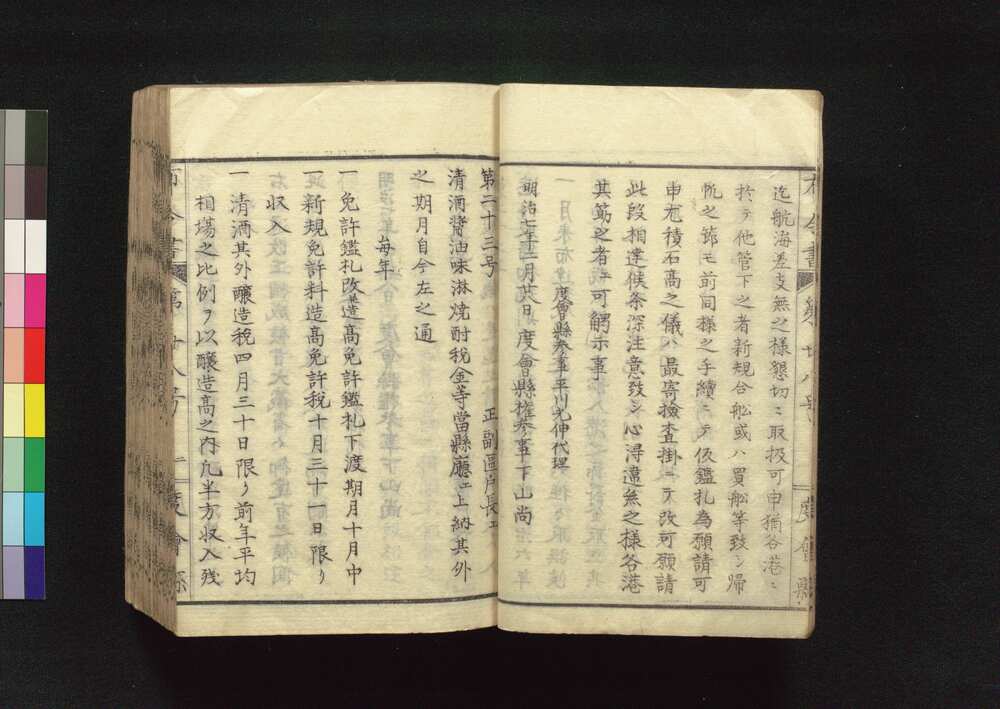 迄航海差支無之様懇切ニ取扱可申猶各港ニ
於テ他管下之者新規合船或ハ買船等致シ帰
帆之節モ前同様之手續ニテ仮鑑札為願請可
申尤積石高之儀ハ最寄檢査掛ニテ改可願請
此段相達候条深注意致シ心得違無之様各港
其筋之者エ可觸示事
度會縣参事平川光伸代理
明治七年二月廿八日 度會縣権参事下山尚
第二十三号 正副區戸長エ
清酒醬油味淋焼酎税金等當縣廳エ上納其外
之期月自今左之通
毎年
一 免許鑑札改造高免許鑑札下渡期月十月中
一 新規免許料造高免許税十月三十一日限リ
収入
一 清酒其外醸造税四月三十日限リ前年平均
相場之比例ヲ以醸造高之内凡半方収入残
布令書 第廿八号 二 度會縣